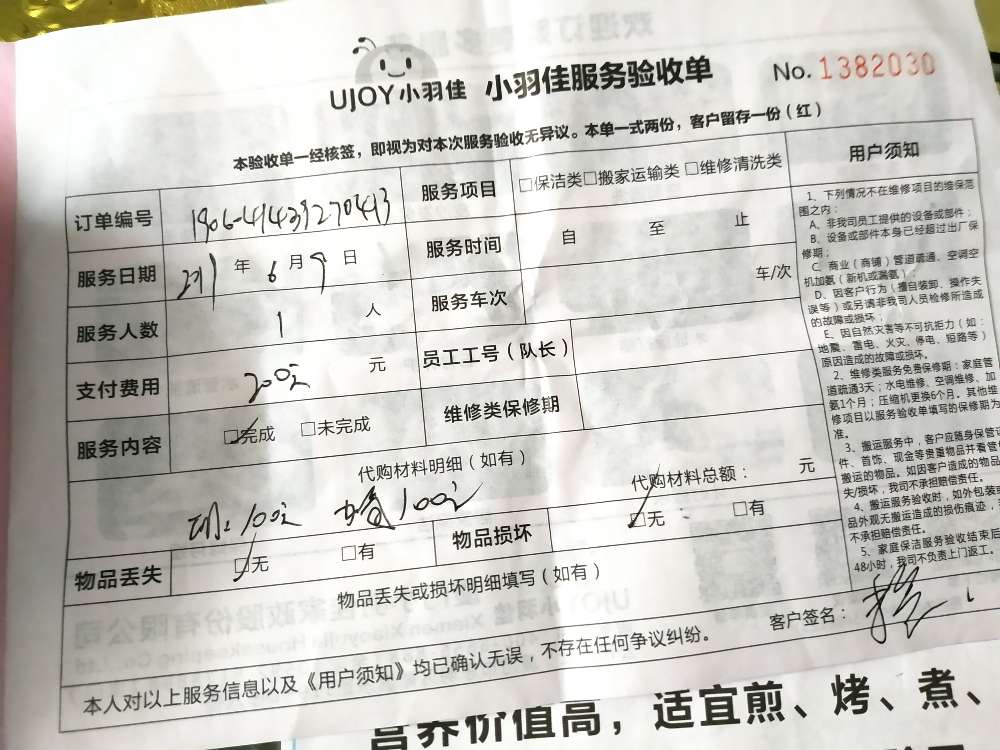 UJOY小羽佳 小羽佳服务验收单 No.1382030
本验收单一经核签，即视为对本次服务验收无异议。本单一式两份，客户留存一份（红）
订单编号
服务项目 □保洁类□搬家运输类□维修清洗类
服务日期 年 6 月 9 日
服务时间 自 至 止
服务人数 1 人
服务车次 车/次
支付费用 200元 元
员工工号（队长）
服务内容 □完成 □未完成
维修类保修期
代购材料明细（如有）
代购材料总额： 元
100元 100元
物品丢失 □无 □有
物品损坏 □无 □有
物品丢失或损坏明细填写（如有）
本人对以上服务信息以及《用户须知》均已确认无误，不存在任何争议纠纷。
客户签名：
用户须知
1、下列情况不在维修项目的维保范
围之内：
A、非我司员工提供的设备或部件；
B、设备或部件本身已经超过出厂保
修期；
C、商业（商铺）管道疏通、空调空
机加氨（新机或漏氨）；
D、因客户行为（擅自装卸、操作失
误等）或另请非我司人员检修所造成
的故障或损坏；
E、因自然灾害等不可抗拒力（如：
地震、雷电、火灾、停电、短路等）
原因造成的故障或损坏。
2、维修类服务免费保修期：家庭管
道疏通3天；水电维修、空调维修、加
氨1个月；压缩机更换6个月。其他维
修项目以服务验收单填写的保修期为
准。
3、搬运服务中，客户应随身保管证
件、首饰、现金等贵重物品并看管
搬运的物品。如因客户造成的物品
失/损坏，我司不承担赔偿责任。
4、搬运服务验收时，如外包装或
品外观无搬运造成的损伤痕迹，
不承担赔偿责任。
5、家庭保洁服务验收结束后
48小时，我司不负责上门返工。
营养价值高，适宜煎、烤、煮、